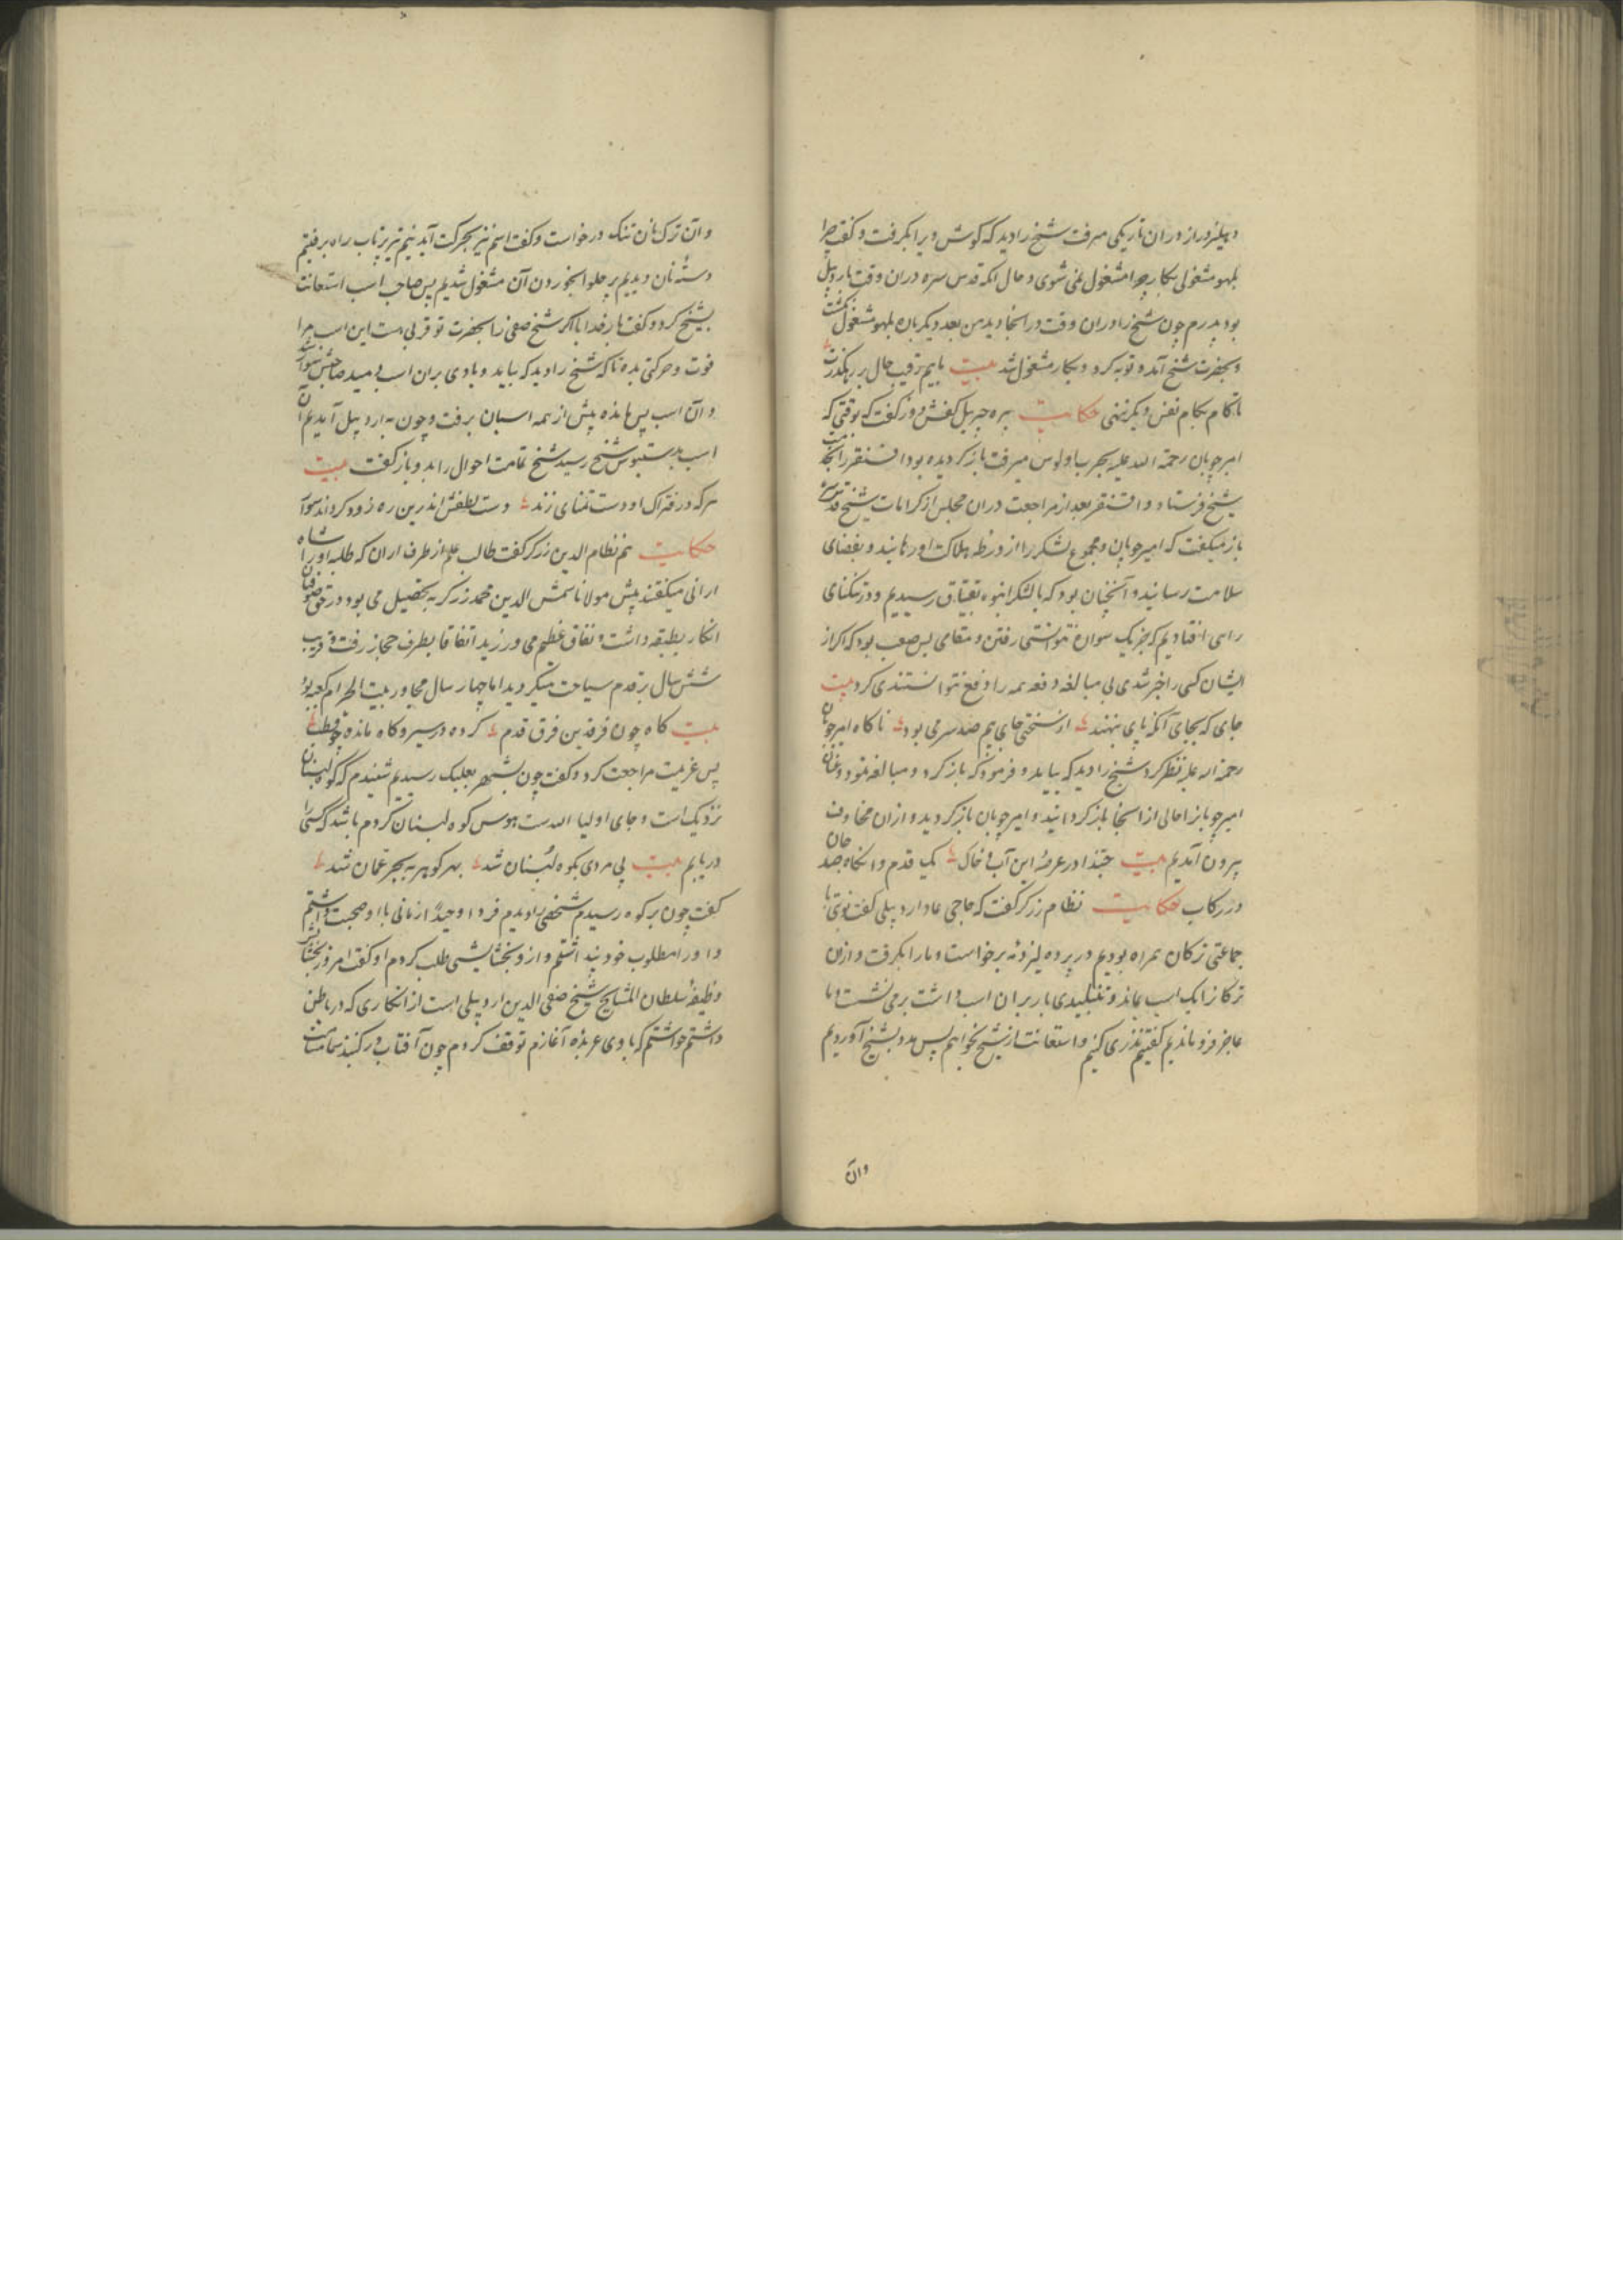 دهلیز دراز در ان تاریکی میرفت شیخ را دید که کوش ویرا بکرفت و کفت چرا
بلهو مشغولی بکار چرا مشغول نمی شوی و حال انکه قدس سره دران وقت باردبیل
بود پدرم چون شیخ را دران وقت در انجا دید من بعد دیکر بان بلهو مشغول نکشت
و بحضرت شیخ آمد و توبه کرد و بکار مشغول شد بیت بایم رقیب حال بر رهکذرت
تا کام بکام نفس دیکر ننهی حکایت پیره جبریل کفش دوز کفت که بوقتی که
امیر چوپان رحمة الله علیه بحرب با اولوس میرفت باز کردیده بود اقسنقر را بخدمت
شیخ فرستاد و اقسنقر بعد از مراجعت دران مجلس از کرامات شیخ قدس سره
باز میکفت که امیر چوپان و مجموع لشکر را از ورطه هلاکت او رهانید و بفضای
سلامت رسانید و آنچنان بود که با لشکر انبوه بقبچاق رسیدیم و در تنکنای
راهی افتادیم که جز یک سواره نتوانستی رفتن و مقامی بس صعب بود که اکر از
ایشان کسی را خبر شدی بی مبالغه دفعه همه را دفع توانستندی کرد بیت
جای که بجای آنکه پای بنهند از سختی جای بیم صد سر می بود ناکاه امیر چوپان
رحمة الله علیه نظر کرد شیخ را دید که بیاید و فرمود که باز کرد و مبالغه نمود و عنان
امیر چوپان را حالی از انجا باز کردانید و امیر چوپان باز کردید و ازان مخاوف
بیرون آمدیم بیت حبّذا در عرصهٔ این آب و خاک یک قدم وانکاه صد جان
در رکاب حکایت نظام زرکر کفت که حاجی عماد اردبیلی کفت نوبتی با
جماعتی ترکان همراه بودیم در برده لیز دمه برخاست و ما را بکرفت و ازن
ترکان را یک اسب بماند و تنبلیدی بار بر ان اسب داشت بر می نشست و ما
عاجز فرو ماندیم کفتیم نذری کنیم و استعانت از شیخ بخواهیم پس مدد بشیخ آوردیم
وان
و آن ترک نان تنک درخواست و کفت اسبم نیز بحرکت آید نیم تیر پرتاب راه برفتیم
دستهٔ نان دیدیم بر حلوا بخوردن آن مشغول شدیم پس صاحب اسب استعانت
بشیخ کرد و کفت بار خدایا اکر شیخ صفی را بحضرت تو قربی هست این اسب مرا
قوت و حرکتی بده ناکه شیخ را دید که بیاید و بادی بران اسب دمید صاحبش سوار شد
و آن اسب پس مانده پیش از همه اسبان برفت و چون به اردبیل آمدیم آن
اسب بدستبوس شیخ رسید شیخ تمامت احوال را بدو باز کفت بیت
هر که در فتراک او دست تمنای زند دست لطفش اندرین ره زود کرداند سوار
حکایت هم نظام الدین زرکر کفت طالب علم از طرف اران که طلبه او را شاه
ارانی میکفتند پیش مولانا شمس الدین محمد زرکر به تحصیل می بود و در حق صوفیان
انکار بطبقه داشت و نفاق عظیم می ورزید اتفاقا بطرف حجاز رفت و قریب
شش سال بر قدم سیاحت میکردید اما چهار سال مجاور بیت الحرام کعبه بود
بیت کاه چون فرقدین فرق قدم کرده در سیر و کاه مانده چو قطب
پس عزیمت مراجعت کرد و کفت چون بشهر بعلبک رسیدیم شنیدم که کوه لبنان
نزدیک است و جای اولیاء الله ست هوس کوه لبنان کردم باشد که کسی را
دریابم بیت پی مردی بکوه لبنان شد بهر کوهر به بحر عمان شد
کفت چون بر کوه رسیدم شخصی را دیدم فردا وحیدا زمانی با او صحبت داشتم
و او را مطلوب خود پنداشتم و ازو بخشایشی طلب کردم او کفت امروز بخشایش
وظیفهٔ سلطان المشایخ شیخ صفی الدین اردبیلی است از انکاری که در باطن
داشتم خواستم که با وی عربده آغازم توقف کردم چون آفتاب در کنبد سمائیت